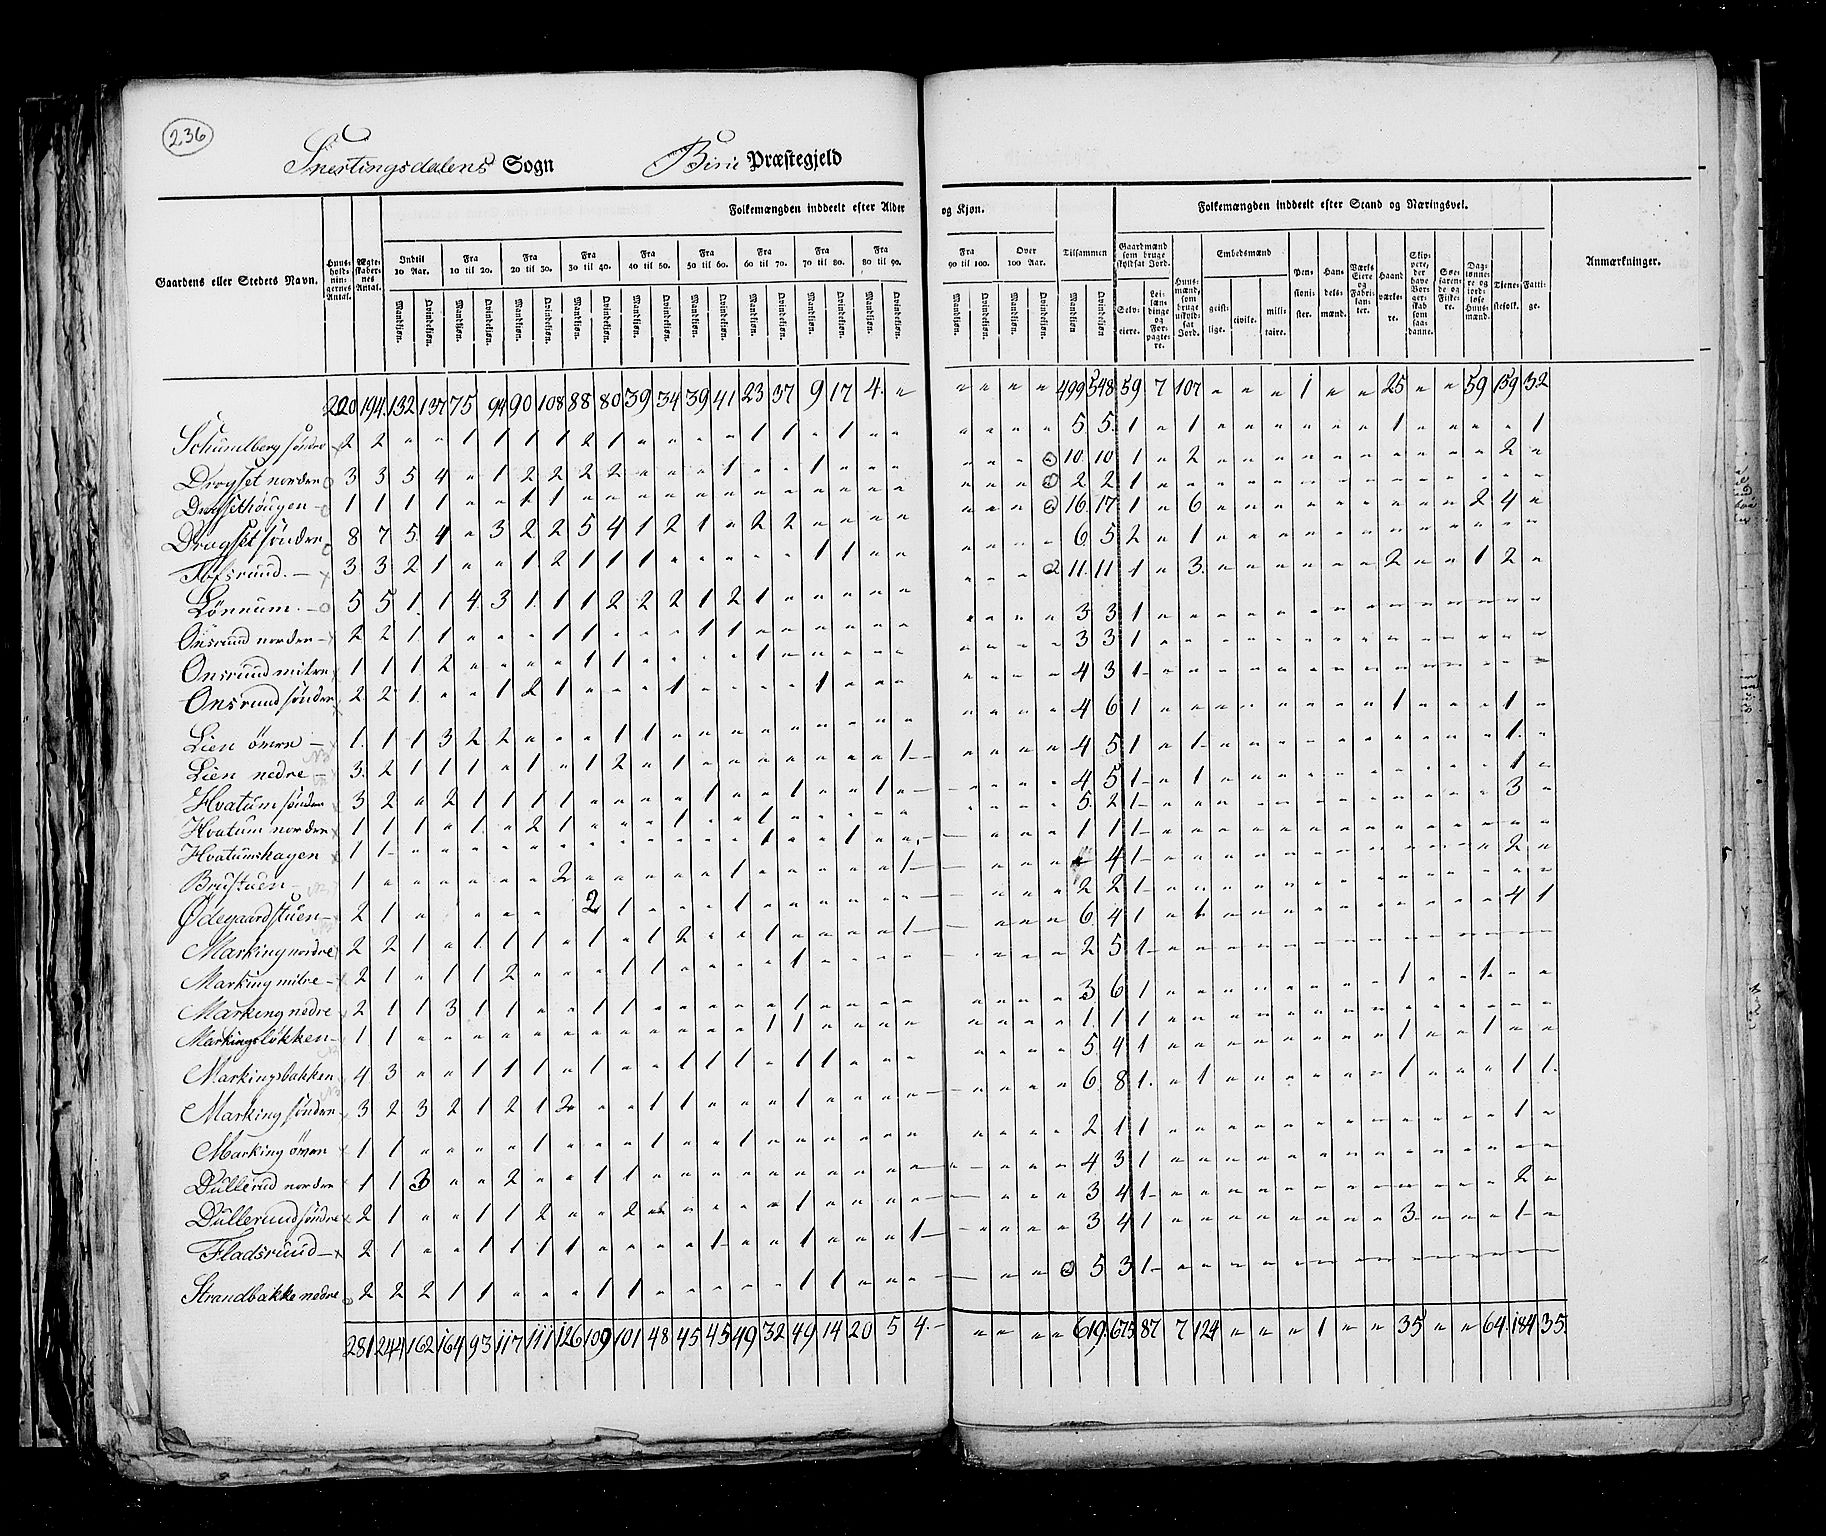 236
Snertingsdalens Sogn Biri Præstegjeld
Folkemængden inddeelt efter Alder og Kjøn. Folkemængden inddeelt efter Stand og Næringsvei.
Gaardens eller Stedets Navn. Huus-holdningernes Antal. Ægteskabernes Antal. Indtil 10 Aar. Fra 10 til 20. Fra 20 til 30. Fra 30 til 40. Fra 40 til 50. Fra 50 til 60. Fra 60 til 70. Fra 70 til 80. Fra 80 til 90. Fra 90 til 100. Over 100 Aar. Tilsammen Gaardmænd som bruge skyldsat Jord. Embedsmænd Anmærkninger.
Mandkjøn. Qvindekjøn.
Selv-eiere. Lei-lændinge og For-pagte-re. Huus-mænd, som bruge uskyld-sat Jord. geist-lige. civile. mili-taire. Pen-sioni-ster. Han-dels-mænd. Værks-Eiere og Fabri-kan-ter. Haand-værke-re. Skip-pere, der have Bor-ger-skab som saa-danne. Søe-farende og Fiske-re. Dag-lønnere og jord-løse Huus-mænd. Tiene-stefolk. Fatti-ge.
220 194 132 137 75 94 90 108 88 80 39 34 39 41 23 37 9 17 4 " " " " " 499 548 59 7 107 " " " 1 " " 25 " " 59 159 32
Schumlberg søndre 2 2 " " 1 1 1 1 2 1 " " " " 1 1 " 1 " " " " " " 5 5 1 " 1 " " " " " " 1 " " " " 1
Drogset nordre 3 3 5 4 " 1 2 2 2 2 " " " 1 " " 1 " " " " " " 10 10 1 " 2 " " " " " " " " " " 2 "
Drogsethougen 1 1 1 1 " " 1 1 " " " " " " " " " " " " 2 2 1 " " " " " " " " " " " " " "
Drogset søndre 8 7 5 4 " 3 2 2 5 4 1 2 1 " 2 2 " " " " 16 17 1 " 6 " " " " " " " " " 2 4 "
Tofsruud 3 3 2 1 " " 1 2 1 1 1 " " " " " 1 1 " " 6 5 2 " 1 " " " " " " " " " " " "
Lønnum 5 5 1 1 4 3 1 1 1 2 2 2 1 2 1 " " " " " 11 11 1 " 3 " " " " " " 2 " " 1 2 "
Onsruud nordre 2 2 1 1 " " " 1 1 " " " 1 1 " " " " " " 3 3 1 " " " " " " " " " " " " " "
Onsruud mitre 1 1 1 2 " " " " 1 1 " " " " 1 " " " " " 3 3 1 " " " " " " " " " " " " " "
Onsruud søndre 2 2 1 " " 1 2 1 " " " 1 " " " " 1 " " " 4 3 1 " " " " " " " " " " " " " "
Lien øvre 1 1 1 3 2 2 " " " 1 1 " " " " " " " " " 4 6 1 " " " " " " " " 1 " " " 1 "
Lien nedre 3 2 1 1 1 " 1 " 1 2 " 1 " " " " " " " 1 4 5 1 " 1 " " " " " " " " " " 1 "
Hvatum søndre 3 2 " 2 1 1 1 1 " " " " 1 " 1 " " 1 " 4 5 1 " 1 " " " " " " " " " " 1 "
Hvatum nordre 1 1 1 " 1 " 2 1 " " " 1 " " 1 " " " " " 5 2 1 " " " " " " " " " " " " 3 "
Hvatumshagen 1 1 " " " " " " " " " " " " 1 " " 1 " " 1 1 1 " " " " " " " " " " " " " "
Brustuen 1 " " " " " " 2 " " " " " 1 " " " " " 1 4 1 " " " " " " " " " " " " 2 "
Ødegaardstuen 2 1 " " " " " " 2 1 " " " 1 " " " " " " 2 2 1 " " " " " " " " " " " " " "
Marking nordre 2 2 1 " 1 1 1 " 1 " 1 2 " " 1 " " " " 1 6 4 1 " 1 " " " " " " " " " " 4 1
Marking mitre 2 1 " 1 1 2 " " " 1 1 " " " " 1 " " " " 2 5 1 " " " " " " " " " " " " " "
Marking nedre 2 1 1 3 1 1 " " 1 1 " " " " " 1 " " " " 3 6 1 " " " " " " " " 1 " " 1 " "
Markingsløkken 1 1 " " " " " " " " " " " " 1 1 " " " " 1 1 1 " " " " " " " " " " " " " "
Markingsbakken 4 3 " " 1 1 1 " 1 " 1 1 1 1 " 1 1 " " " 5 4 1 " " " " " " " " 1 " " 1 " "
Marking søndre 3 2 3 2 1 2 1 2 " " 1 1 " " " 1 " " " " 6 8 1 " 1 " " " " " " 1 " " " 1 1
Marking øvre 1 1 " " " " 1 " " " 1 " " 1 " " " " " " 2 1 1 " " " " " " " " " " " " 1 "
Dullerud nordre 1 1 3 " " 2 " " 1 1 " " " " " " " " " " 4 3 1 " " " " " " " " " " " " " "
Dulleruud søndre 2 1 " " 1 1 2 " " 2 " " " " " 1 " " " " 3 4 1 " " " " " " " " " " " " 2 "
Fladsruud 2 1 " " 1 1 1 1 " " " " 1 " " 1 " " " 1 3 4 1 " " " " " " " " 3 " " " 1 "
Strandbakke nedre 2 2 2 1 1 " " " 1 1 " " " " " 1 1 " " " 5 3 1 " " " " " " " " " " " " " "
281 244 162 164 93 117 111 126 109 101 48 45 45 49 32 49 14 20 5 4 " " " " 619 675 87 7 124 " " " 1 " " 35 " " 64 184 35